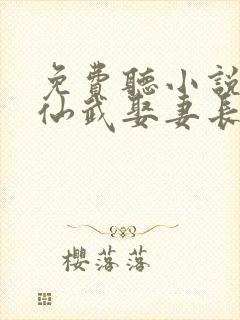 免費聽小說
仙武娶妻長
櫻落落